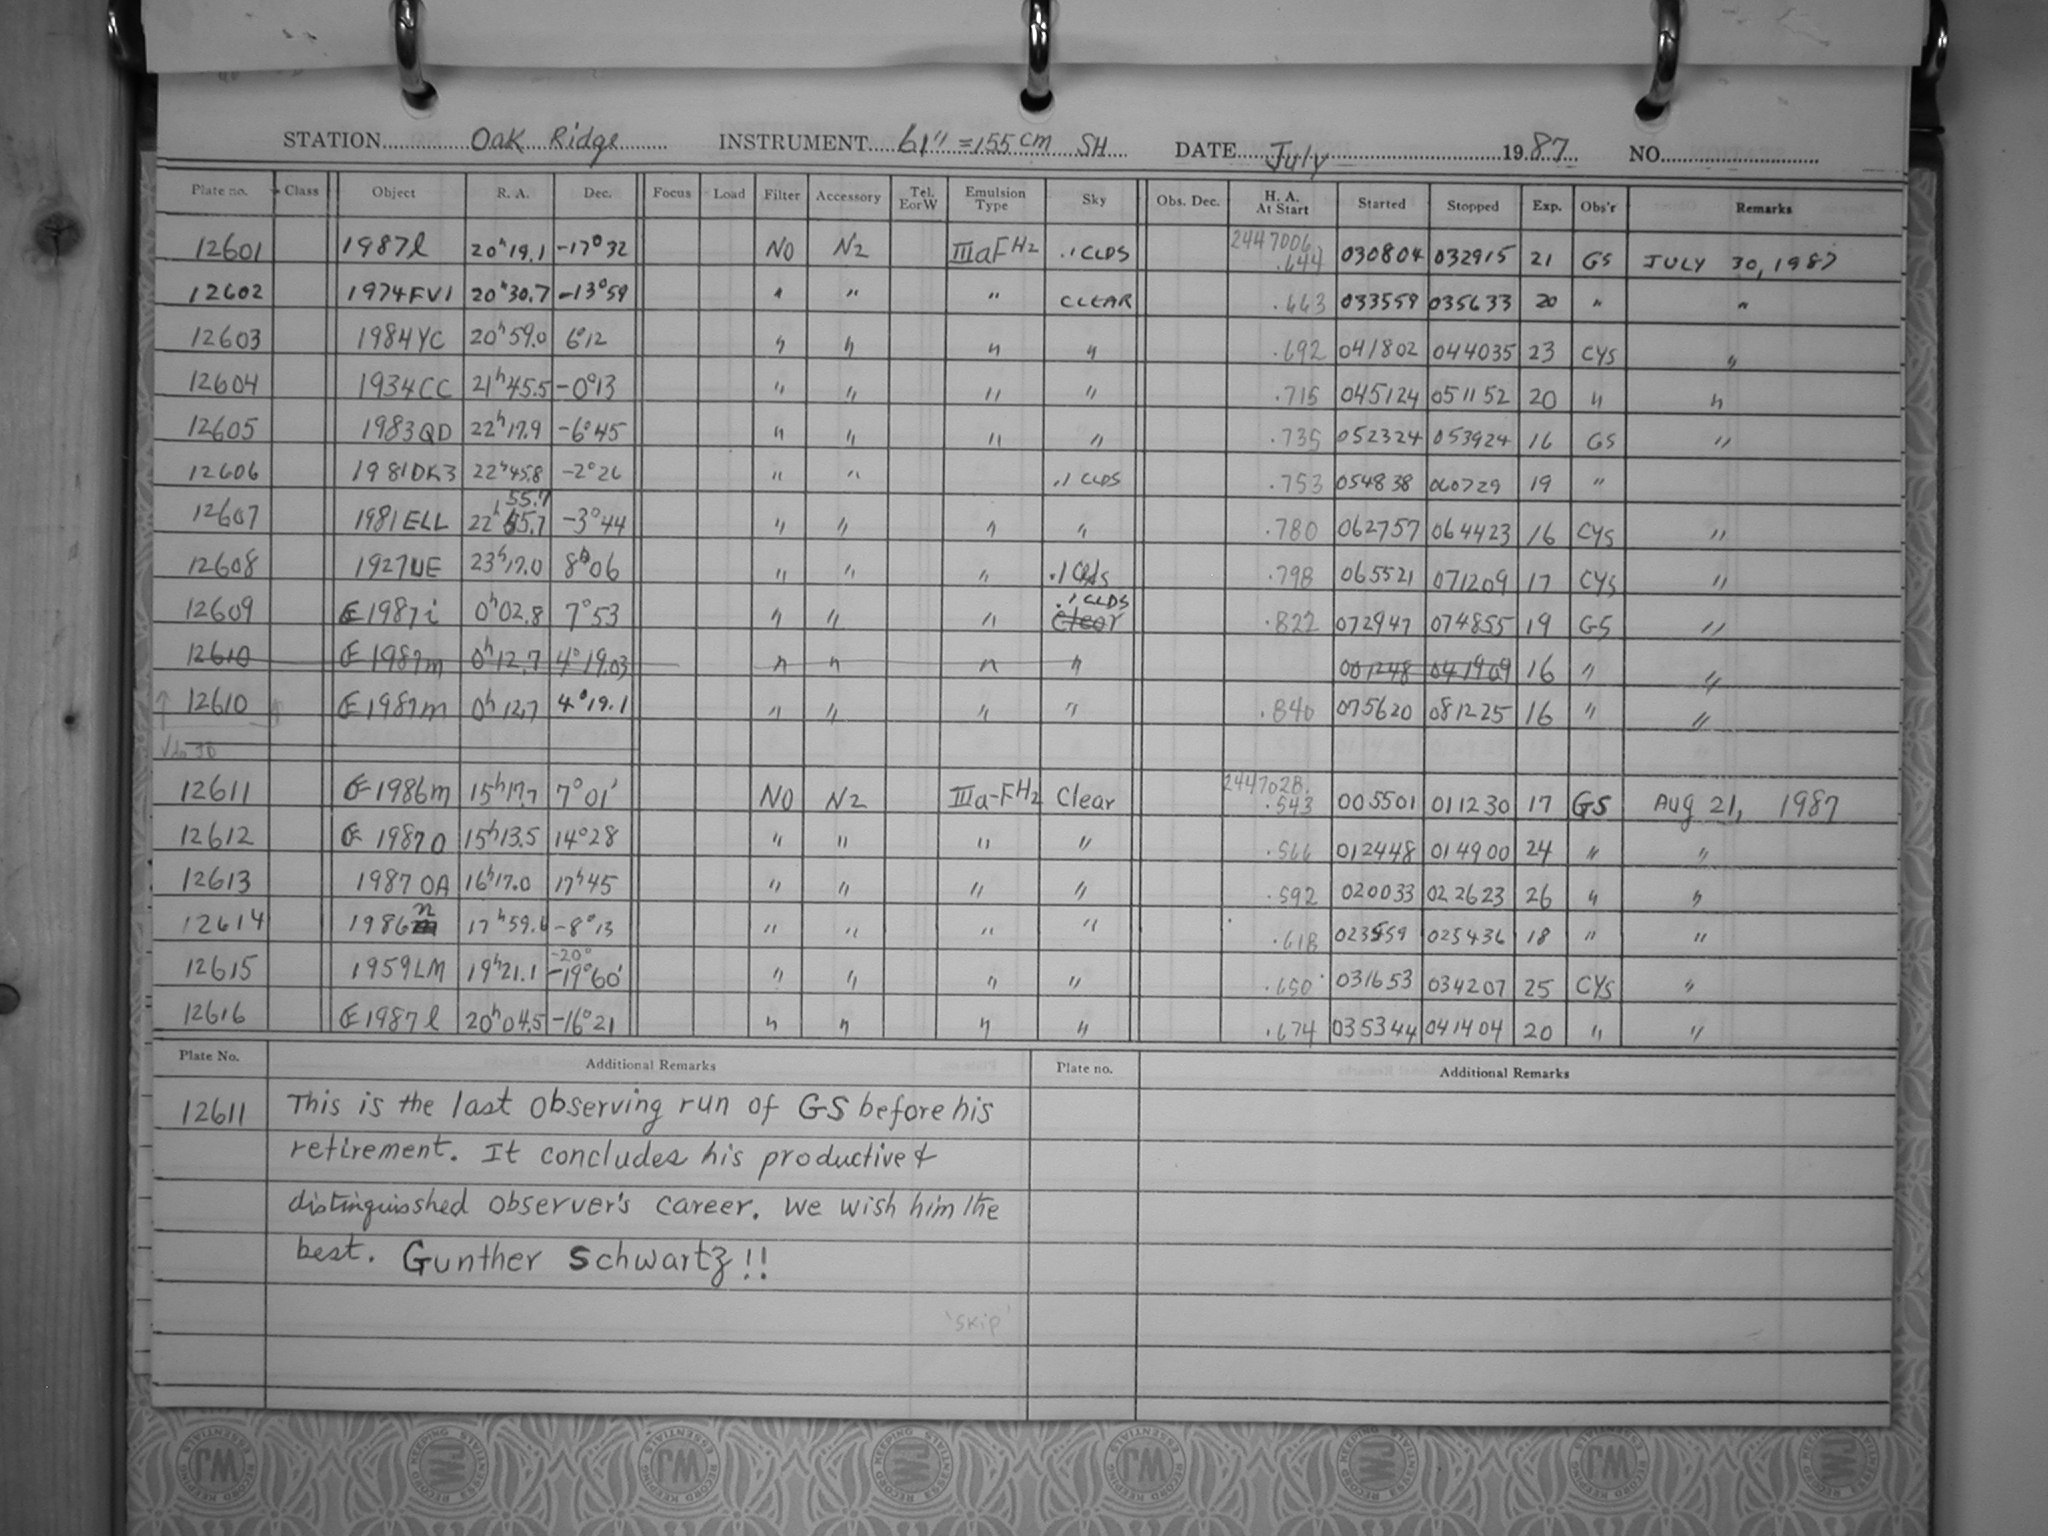 STATION Oak Ridge INSTRUMENT 61" = 155 cm SH DATE July 1987 NO.
Plate no. Class Object R. A. Dec. Focus Load Filter Accessory Tel. EorW Emulsion Type Sky Obs. Dec. H. A. At Start Started Stopped Exp. Obs'r Remarks
12601 1987l 20h19.1 -17°32 NO N2 IIIaF H2 .1 CLDS 2447006 .644 030804 032915 21 GS JULY 30, 1987
12602 1974FV1 20h30.7 -13°59 " " " CLEAR .663 033559 035633 20 " "
12603 1984YC 20h59.0 6°12 " " " " .692 041802 044035 23 CYS "
12604 1934CC 21h45.5 -0°13 " " " " .715 045124 051152 20 " "
12605 1983QD 22h17.9 -6°45 " " " " .735 052324 053924 16 GS "
12606 1981DK3 22h45.8 -2°26 " " .1 CLDS .753 054838 060729 19 "
55.7
12607 1981ELL 22h 55.7 -3°44 " " " " .780 062757 064423 16 CYS "
12608 1927UE 23h17.0 8°06 " " " .1 Clds .798 065521 071209 17 CYS "
.1 CLDS
12609 1987i 0h02.8 7°53 " " " Clear .822 072947 074855 19 GS "
12610 1987m 0h12.7 4°19.03 " " " " 001248 041909 16 " "
12610 1987m 0h12.7 4°19.1 " " " " .840 075620 081225 16 " "
12611 1986m 15h17.7 7°01' NO N2 IIIa-F H2 Clear 2447028. .543 005501 011230 17 GS Aug 21, 1987
12612 1987O 15h13.5 14°28 " " " " .566 012448 014900 24 " "
12613 1987 OA 16h17.0 17h45 " " " " .592 020033 022623 26 " "
12614 1986n 17h59.6 -8°13 " " " " .618 023559 025436 18 " "
-20°
12615 1959LM 19h21.1 -19°60' " " " " .650 031653 034207 25 CYS "
12616 1987l 20h04.5 -16°21 " " " " .674 035344 041404 20 " "
Plate No. Additional Remarks Plate no. Additional Remarks
12611 This is the last observing run of GS before his
retirement. It concludes his productive &
distinguisshed observer's career. We wish him the
best. Gunther Schwartz!!
'skip'
WJ RECORD KEEPING ESSENTIALS